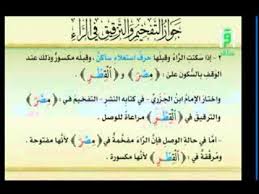 جواز التفخيم والترقيق في الراء
٢ - إذا سكنت الرّاء وقبلها حرف استعلاء ساكن، وقبله مكسور وذلك عند
الوقف بالسّكون على : ﴿ مِصْرَ ﴾ و ﴿ الْقِطْرِ ﴾
واختار الإمام ابن الجزري - في كتابه النشر - التفخيم في ﴿ مِصْرَ ﴾
والترقيق في ﴿ الْقِطْرِ ﴾ مراعاة للوصل .
- أمّا في حالة الوصل فإنّ الرّاء مفخّمة في ﴿ مِصْرَ ﴾ لأنها مفتوحة .
ومرقّقة في ﴿ الْقِطْرِ ﴾ لأنها مكسورة .